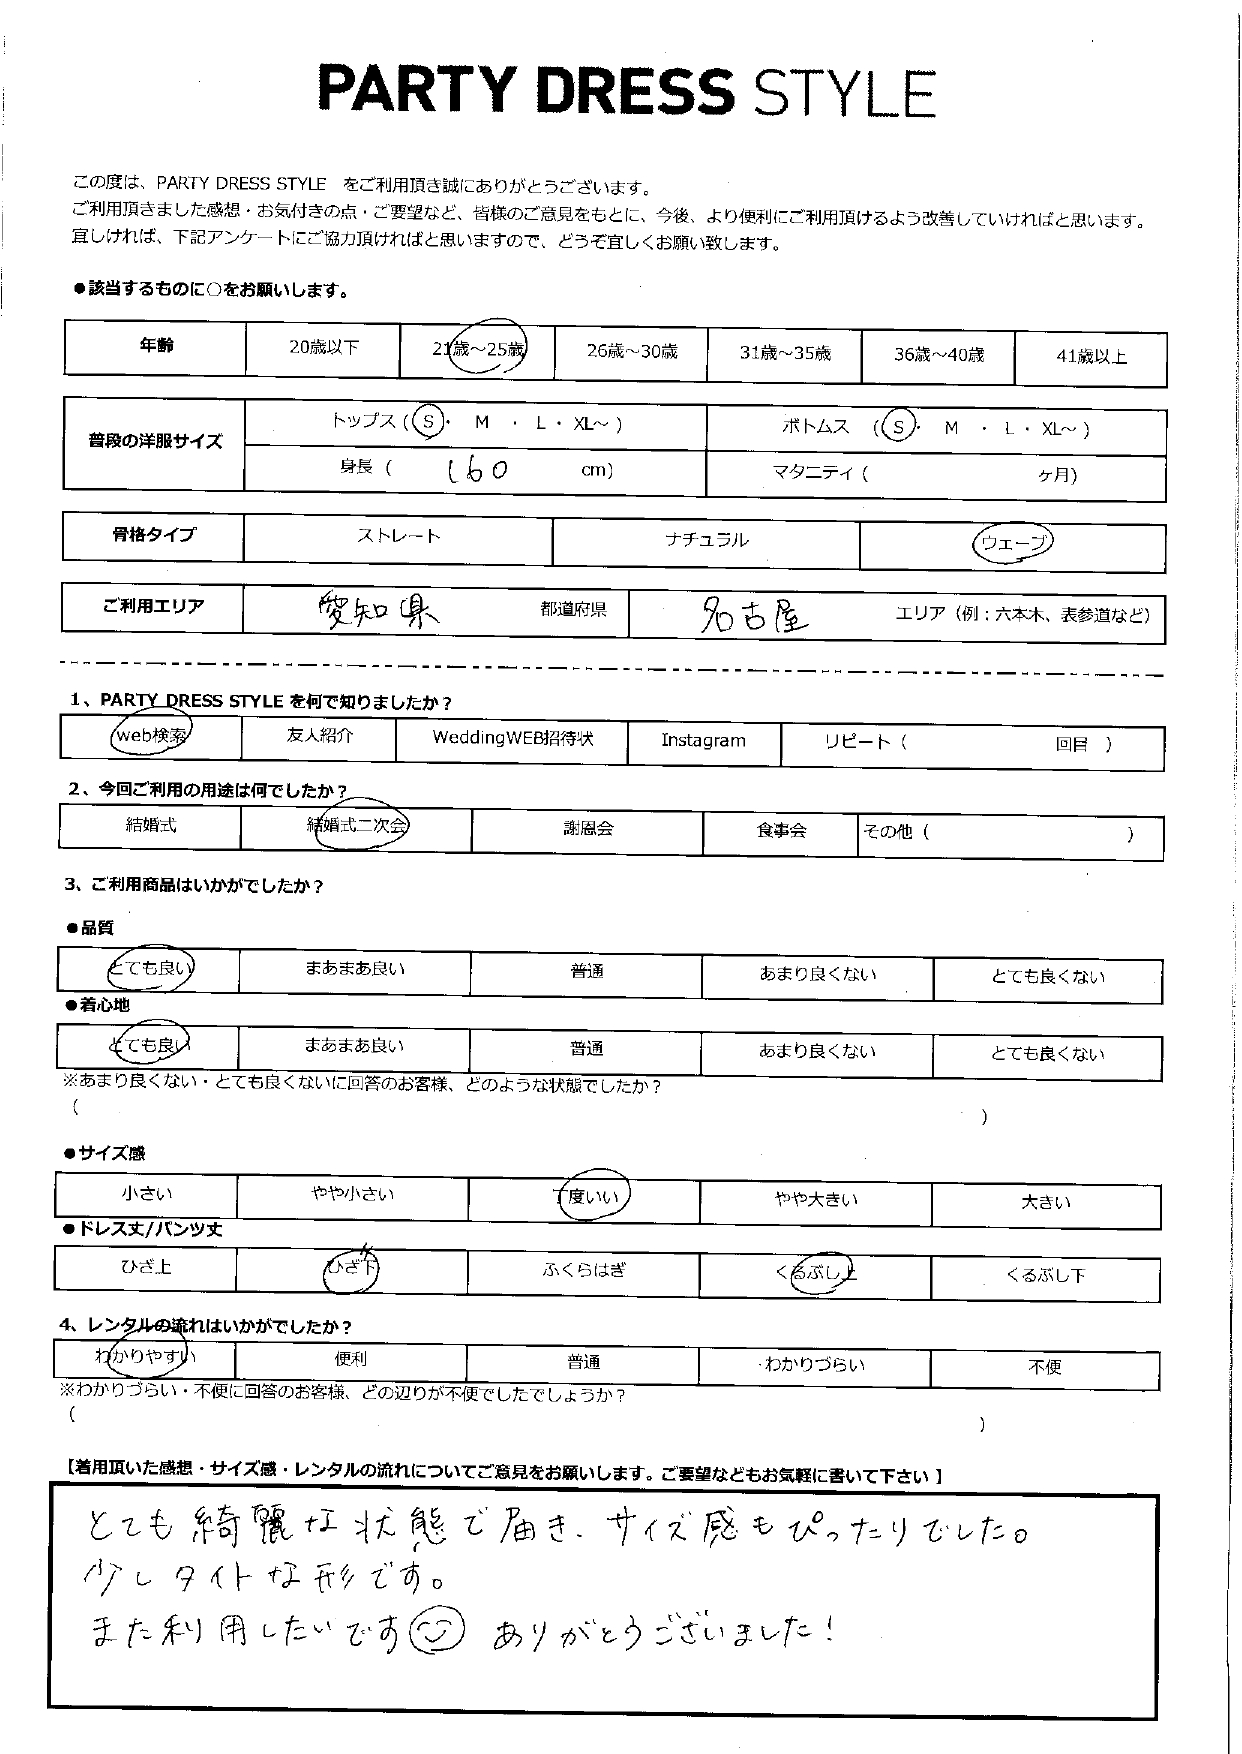 PARTY DRESS STYLE
この度は、PARTY DRESS STYLE をご利用頂き誠にありがとうございます。
ご利用頂きました感想・お気付きの点・ご要望など、皆様のご意見をもとに、今後、より便利にご利用頂けるよう改善していければと思います。
宜しければ、下記アンケートにご協力頂ければと思いますので、どうぞ宜しくお願い致します。
●該当するものに○をお願いします。
年齢 20歳以下 21歳～25歳 26歳～30歳 31歳～35歳 36歳～40歳 41歳以上
普段の洋服サイズ トップス (S・ M ・ L ・ XL～ ) ボトムス (S・ M ・ L ・ XL～ )
身長 ( 160 cm) マタニティ ( ヶ月)
骨格タイプ ストレート ナチュラル ウェーブ
ご利用エリア 愛知県 都道府県 名古屋 エリア（例：六本木、表参道など）
1、PARTY DRESS STYLE を何で知りましたか？
web検索 友人紹介 WeddingWEB招待状 Instagram リピート（ 回目 ）
2、今回ご利用の用途は何でしたか？
結婚式 結婚式二次会 謝恩会 食事会 その他（ ）
3、ご利用商品はいかがでしたか？
●品質
とても良い まあまあ良い 普通 あまり良くない とても良くない
●着心地
とても良い まあまあ良い 普通 あまり良くない とても良くない
※あまり良くない・とても良くないに回答のお客様、どのような状態でしたか？
( )
●サイズ感
小さい やや小さい 丁度いい やや大きい 大きい
●ドレス丈/パンツ丈
ひざ上 ひざ下 ふくらはぎ くるぶし上 くるぶし下
4、レンタルの流れはいかがでしたか？
わかりやすい 便利 普通 わかりづらい 不便
※わかりづらい・不便に回答のお客様、どの辺りが不便でしたでしょうか？
( )
【着用頂いた感想・サイズ感・レンタルの流れについてご意見をお願いします。ご要望などもお気軽に書いて下さい 】
とても綺麗な状態で届き、サイズ感もぴったりでした。
少しタイトな形です。
また利用したいです ありがとうございました！